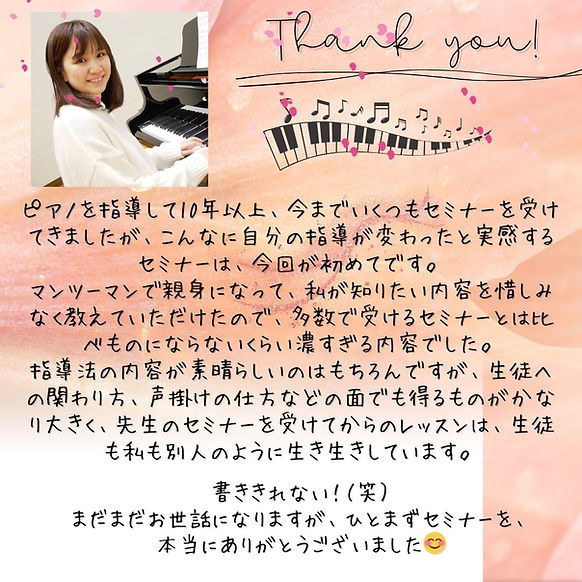 Thank you!
ピアノを指導して10年以上、今までいくつもセミナーを受け
てきましたが、こんなに自分の指導が変わったと実感する
セミナーは、今回が初めてです。
マンツーマンで親身になって、私が知りたい内容を惜しみ
なく教えていただけたので、多数で受けるセミナーとは比
べものにならないくらい濃すぎる内容でした。
指導法の内容が素晴らしいのはもちろんですが、生徒へ
の関わり方、声掛けの仕方などの面でも得るものがかな
り大きく、先生のセミナーを受けてからのレッスンは、生徒
も私も別人のように生き生きしています。
書ききれない！(笑)
まだまだお世話になりますが、ひとまずセミナーを、
本当にありがとうございました😊